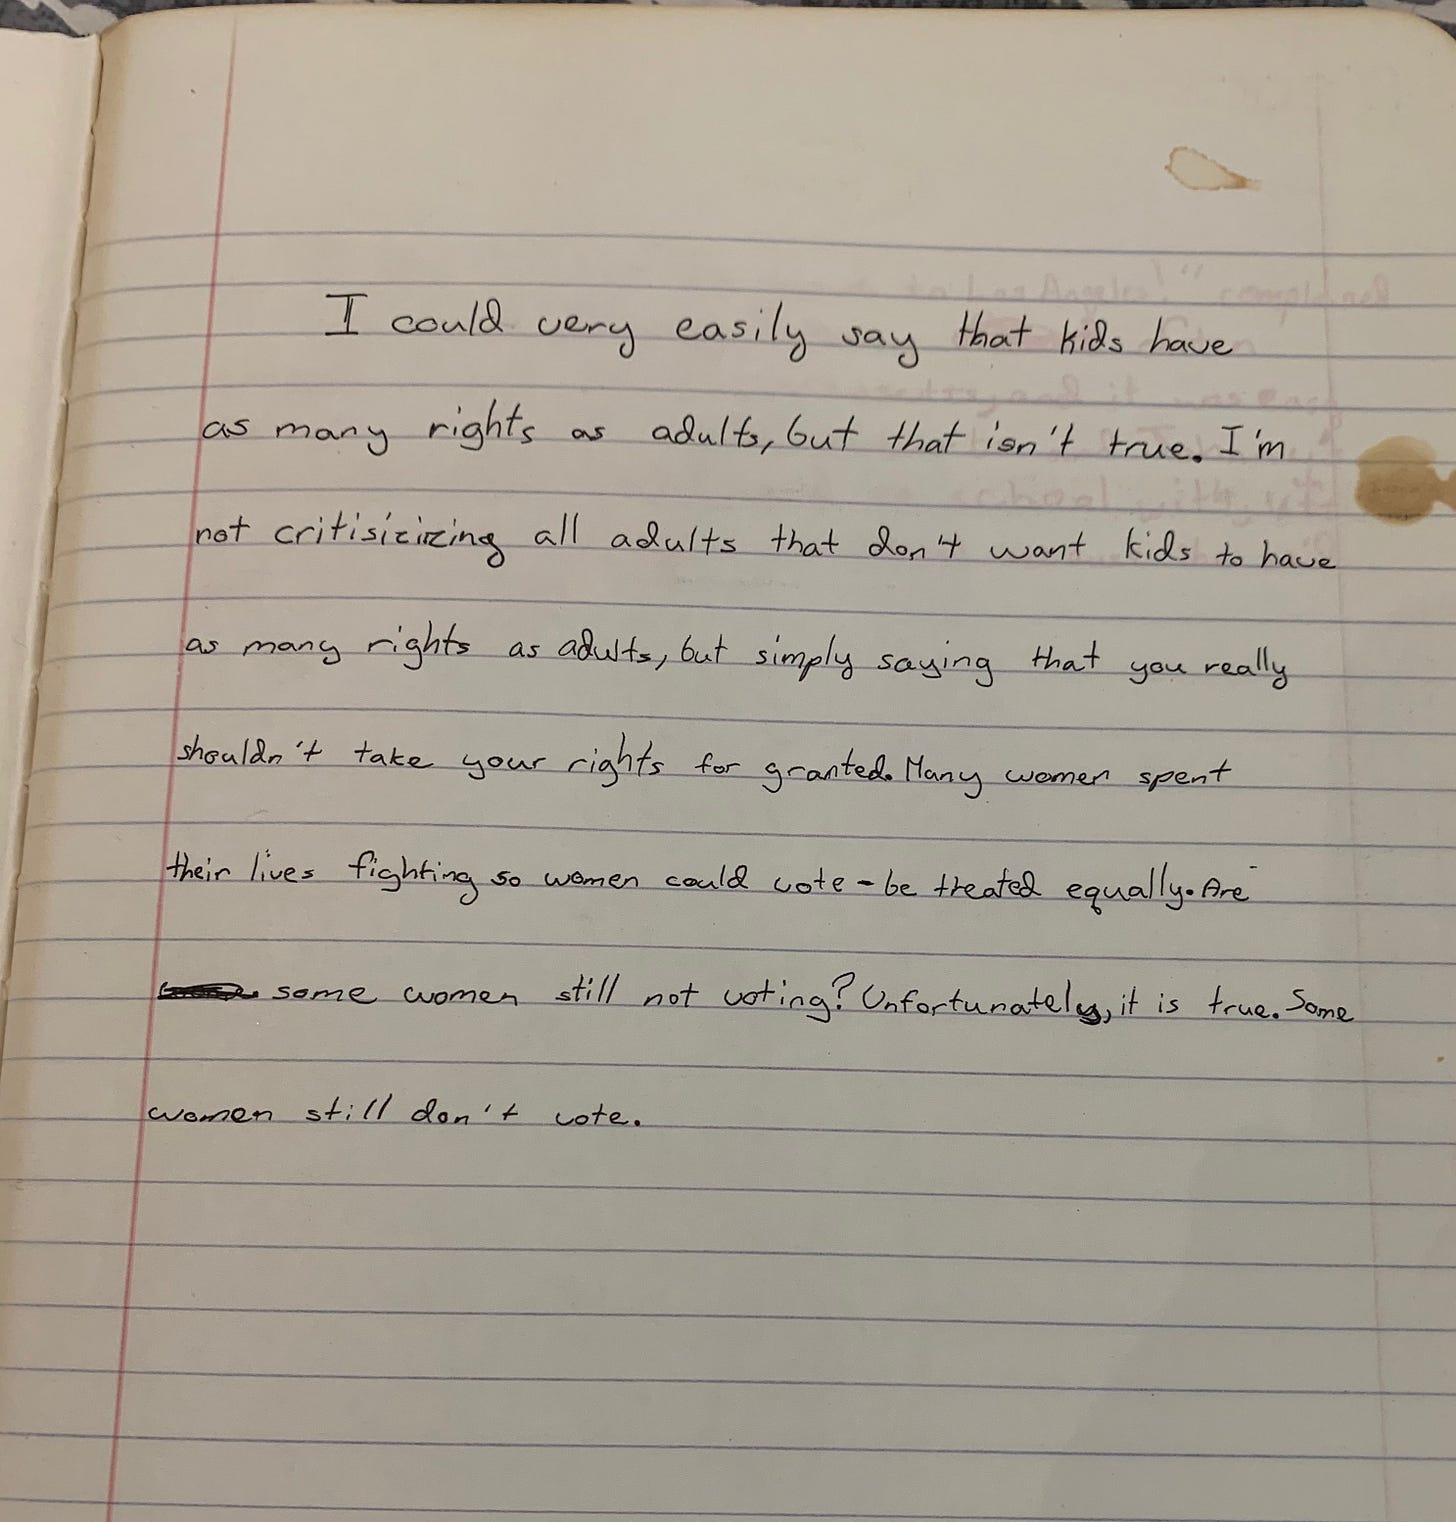 I could very easily say that kids have
as many rights as adults, but that isn't true. I'm
not critisizizing all adults that don't want kids to have
as many rights as adults, but simply saying that you really
shouldn't take your rights for granted. Many women spent
their lives fighting so women could vote - be treated equally. Are
some women still not voting? Unfortunately, it is true. Some
women still don't vote.